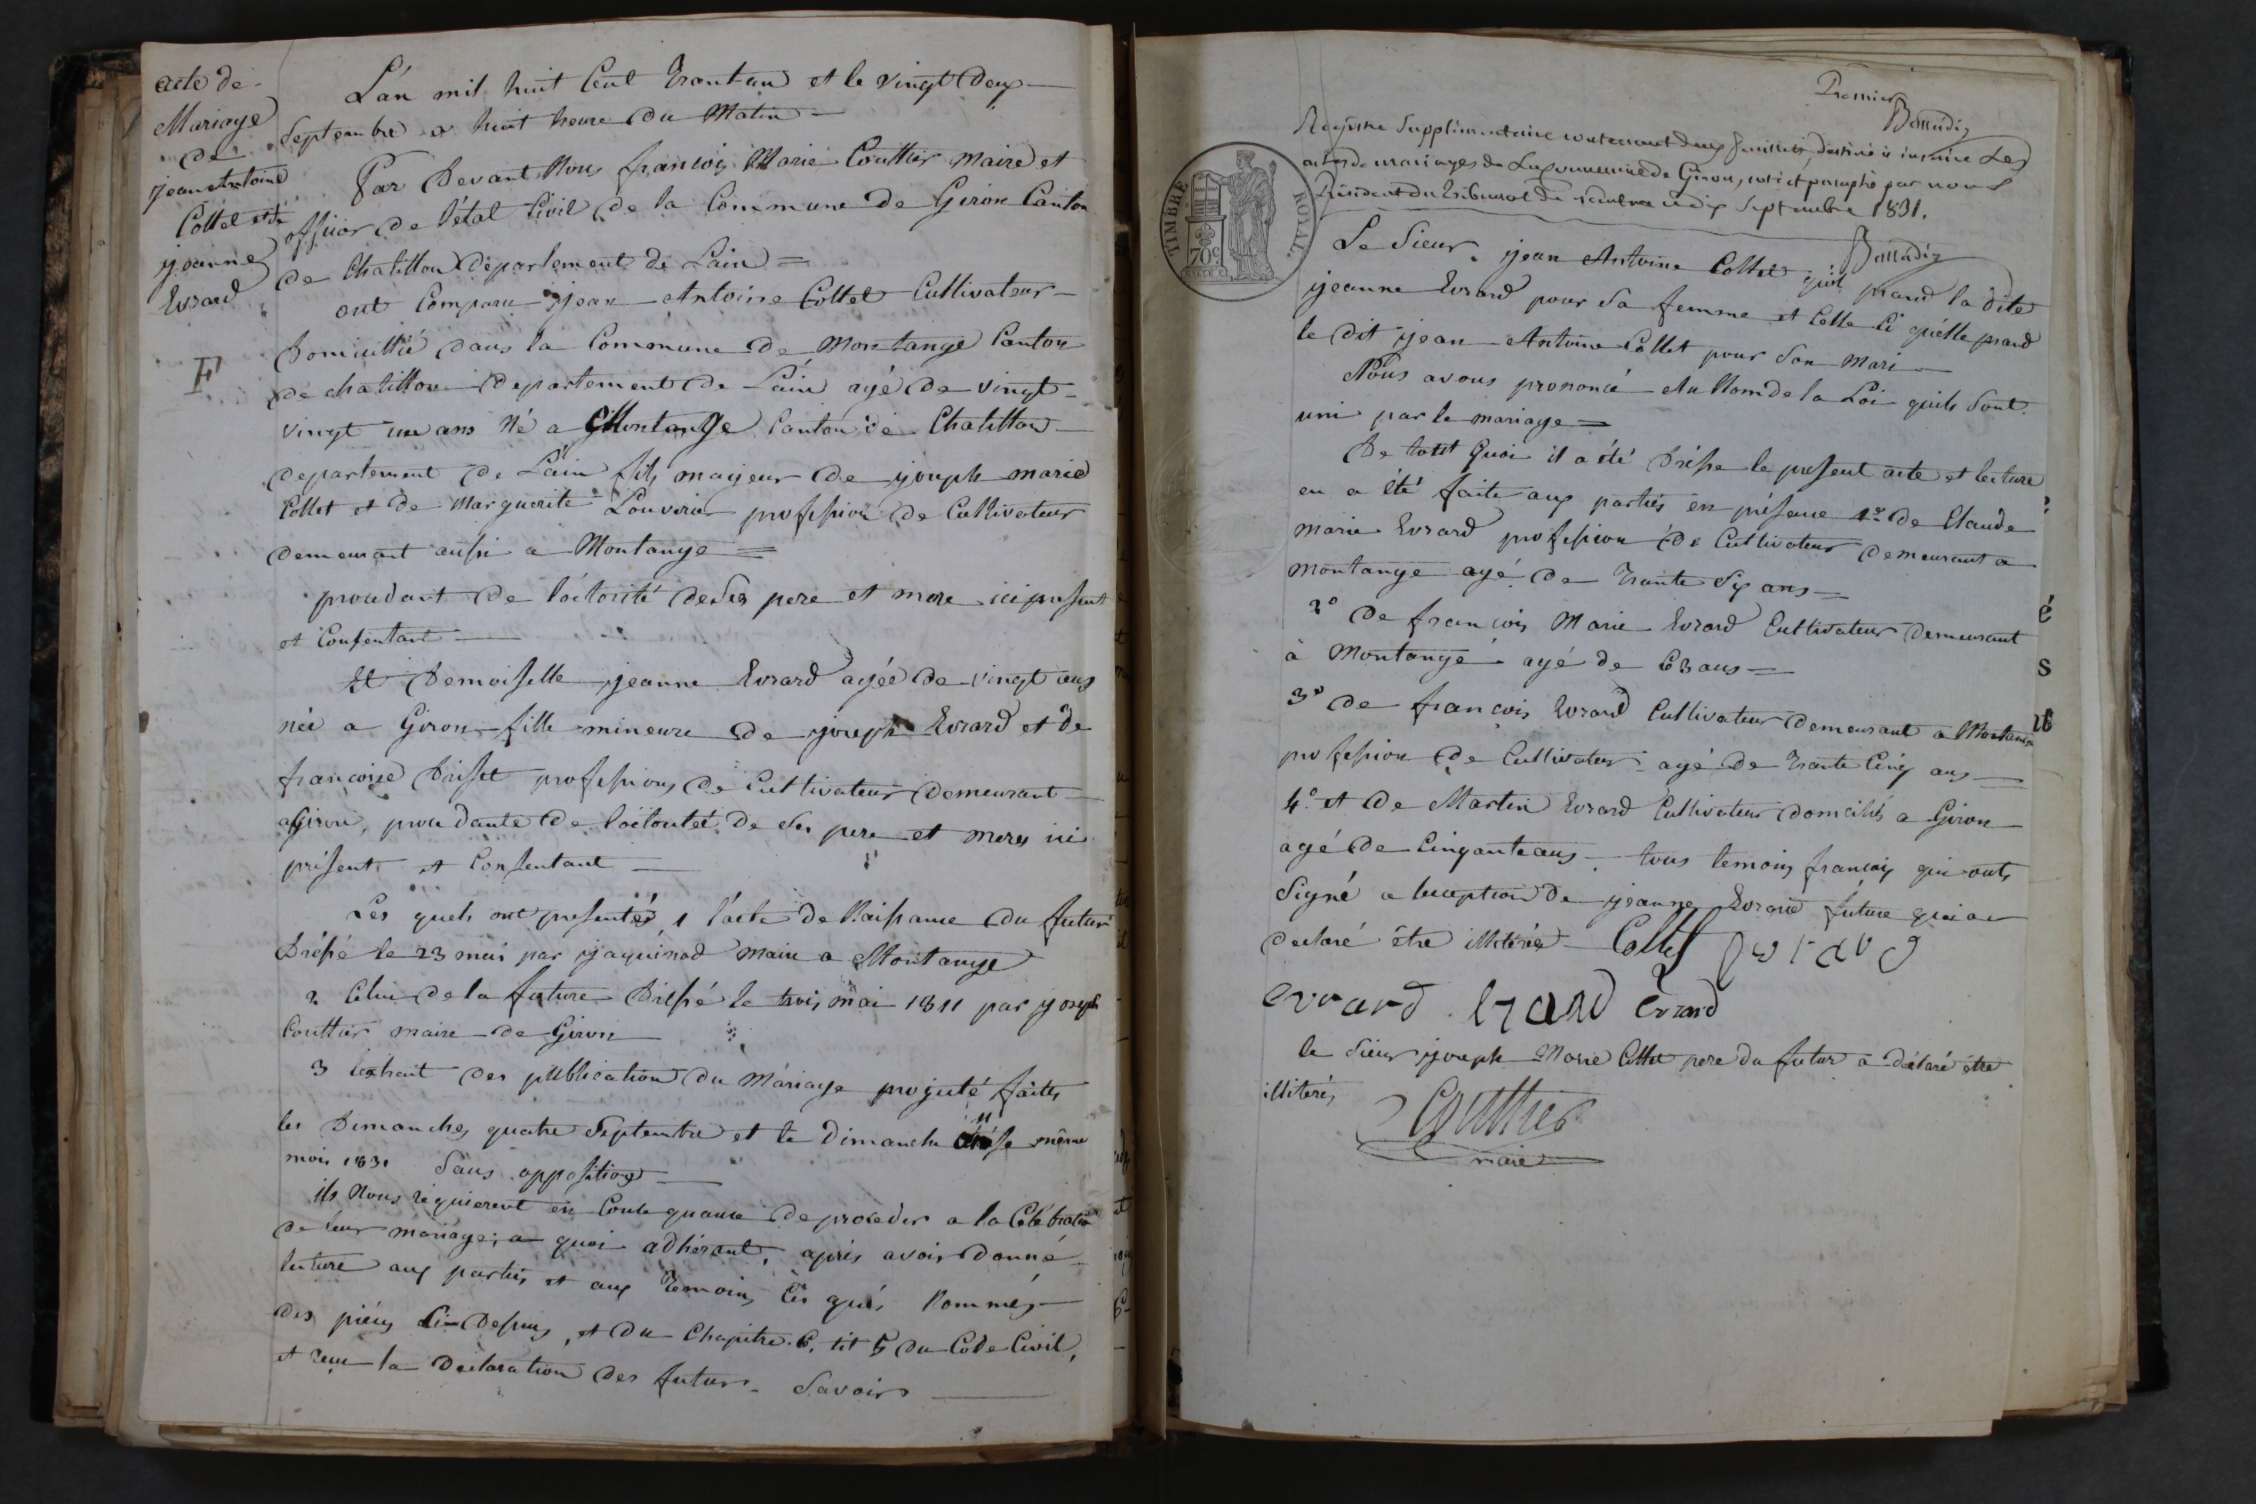 acte de
Mariage
de
jean Antoine
Collet et de
jeanne
Evrard
F
L'an mil huit Cent Trant-un et le vingt Deux
Septembre a huit heure du Matin
Par Devant Nous françois Marie Couttier maire et
officier de l'état Civil de la Commune de Giron Canton
de Chatillon département de Lain
ont Comparu jean Antoine Collet Cultivateur
Domicillié dans la Commune de Montange Canton
de chatillon departement de Lain agé de vingt
vingt un ans Né a Montange Canton de Chatillon
departement de Lain fils majeur de joseph marie
Collet et de Marguerite Louvrier profession de Cultivateur
demeurant aussi a Montange
proudant de l'otorité de Ses pere et mere ici present
et Consentant
Et Demoiselle jeanne Evrard agée de vingt ans
née a Giron fille mineure de joseph Evrard et de
francoise Brisset professions de Cultivateur Demeurant
a Giron, proudante de l'otorité de Ses pere et meres ici
présent et Consentant
Les quels ont presentés 1 l'acte de Naissance du futur
Dréssé le 23 mai par jaquinod maire a Montange
2 Celui de la future Dressé le trois mai 1811 par joseph
Couttier maire de Giron
3 extrait des publication du Mariage projeté faites
les Dimanches quatre Septembre et le Dimanche 11 même
mois 1831 Sans opposition
ils Nous requierent en Consequance de proceder a la Celebration
de leur mariage; a quoi adhérant, après avoir Donné
lecture aux parties et aux Temoins Ces qués Nommés
des piéces Ci-Dessus, et du Chapitre 6, tit 5 du Code Civil,
et reçu la Declaration des futurs. Savoir
Premier
Balladiz
Registre Supplémentaire contenant deux feuillets, destiné à inscrire Les
actes de mariages de La Commune de Giron, coté et paraphé par nous
Président du Tribunal de Nantua ce dix Septembre 1831.
Balladiz
TIMBRE ROYAL
70 c
Le Sieur jean Antoine Collet qu'il prand la Dite
jeanne Evrard pour Sa femme et Celle Ci qu'elle prand
le dit jean Antoine Collet pour Son Mari
Nous avons prononcé Au Nom de la Loi quils Sont
uni par le mariage
De tout Quoi il a été Dréssé le present acte et lecture
en a été faite aux parties en présence 1er de Claude
marie Evrard profession de Cultivateur Demeurant a
montange agé de Trante Six ans
2º de francois Marie Evrard Cultivateur Demeurant
à Montange agé de 63 ans
3º de françois Evrard Cultivateur Demeurant a Montange
profession de Cultivateur agé de Trante Cinq ans
4º et de Martin Evrard Cultivateur domicilié a Giron
agé de Cinquante ans tous temoins francois qui onts
Signé a leception de jeanne Evrard future qui a
declaré être illiterée Collet Evrard
evrard Evrard Evrard
le Sieur joseph Marie Collet pere du futur a déclaré être
illiterés
Coutthier
maire